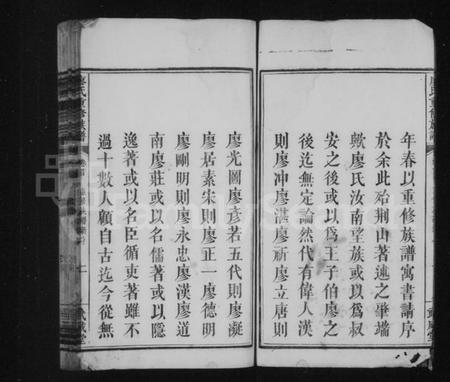 年春以重修族譜寓書請序
於余此殆荆山著述之肇端
歟廖氏汝南望族或以爲叔
安之後或以爲王子伯廖之
後迄無定論然代有偉人漢
則廖冲廖湛廖祈廖立唐則
廖光圖廖彥若五代則廖凝
廖居素宋則廖正一廖德明
廖剛明則廖永忠廖漢廖道
南廖莊或以名儒著或以隱
逸著或以名臣循吏著雖不
過十數人顧自古迄今從無